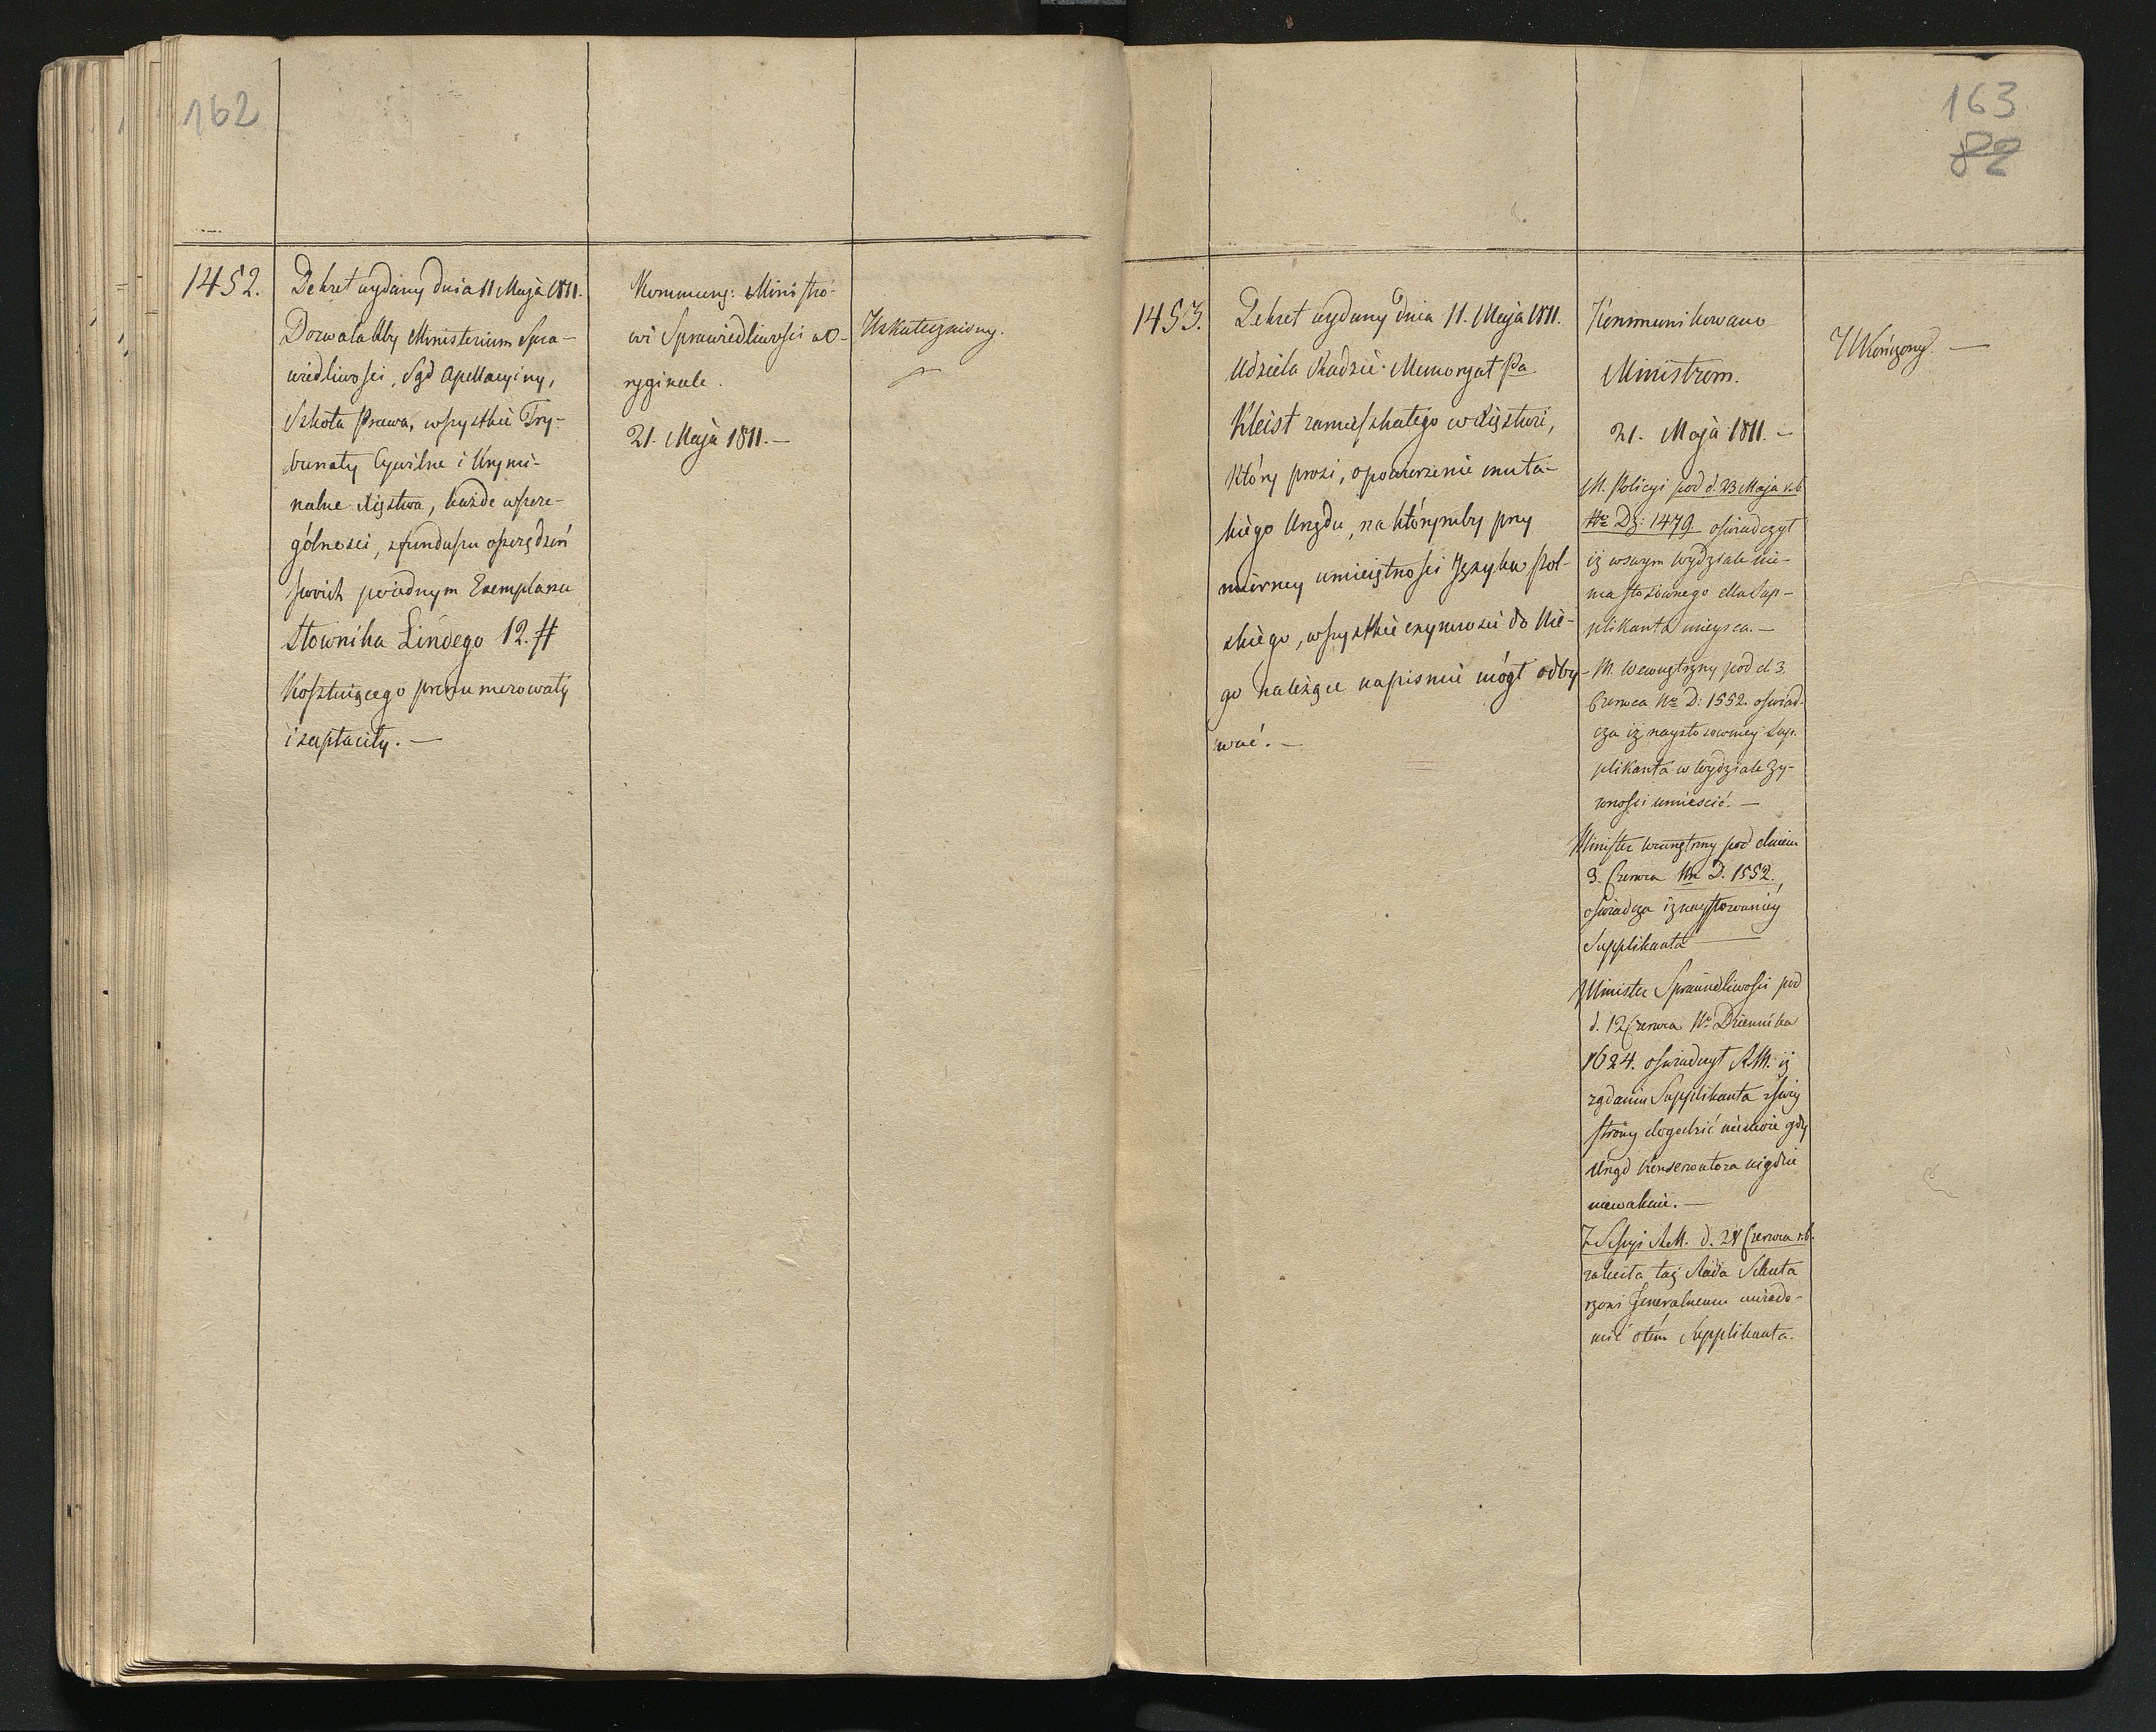 162
1452.
Dekret wydany dnia 11 Maja 1811.
Dozwala Aby Ministerium Spra-
wiedliwości, Sąd Apellacyiny,
Szkoła Prawa, wszystkie Try-
bunały Cywilne i Krymi-
nalne Xięstwa, każde wszcze-
gólności, z funduszu oszczędzeń
swoich po iednym Exemplarzu
Słownika Lindego 12. #
Kosztuiącego prenumerowały
i zapłaciły. —
Kommunig: Ministro-
wi Sprawiedliwości w O-
ryginale.
21. Maja 1811. —
Uskuteczniony.
163
82
1453.
Dekret wydany dnia 11. Maja 1811.
Udziela Radzie Memoryał Pa
Kleist zamieszkałego w Xięstwie,
Który prosi, o powierzenie mu ta-
kiego Urzędu, na którymby przy
mierney umieiętności Języka Pol-
skiego, wszystkie czynności do Nie-
go należące na piśmie mógł odby-
wać. —
Kommunikowano
Ministrom.
21. Maja 1811. —
M. Policyi pod d. 23 Maja r.b.
Nro Dz: 1479 oświadczył
iż w swym Wydziale nie-
ma stosownego dla Sup-
plikanta mieysca. —
M. Wewnętrzny pod d. 3.
Czerwca Nro D: 1552. oświad-
cza iż naystosowniey Sup-
plikanta w Wydziale Ży-
wności umieścić. —
Minister Wewnętrzny pod dniem
3. Czerwca Nro D. 1552.
oświadcza iż naystosowniey
Supplikanta —
Minister Sprawiedliwości pod
d. 12 Czerwca No Dziennika
1624. oświadczył R.M. iż
żądaniu Supplikanta z swey
strony dogodzić nie może gdy
Urząd Konserwatora nigdzie
nie wakuie. —
Z Sessyi R.M. d. 28 Czerwca r.b.
zaleciła taż Rada Sekreta
rzowi Jeneralnemu uwiado-
mić o tem Supplikanta.
Ukończony. —